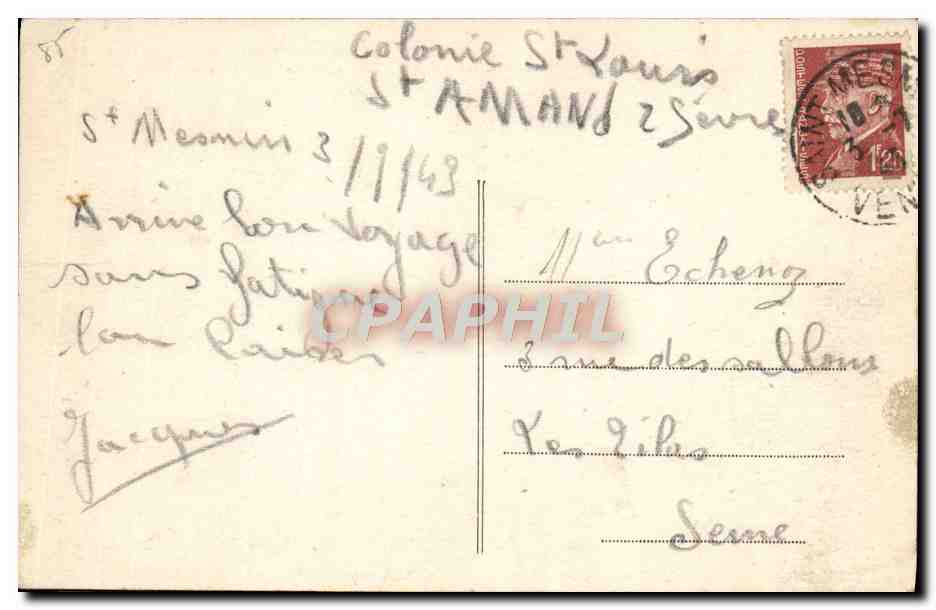 85
Colonie St Louis
St AMAND 2 Sèvres
St Mesmin 3/9/43
Arrivé bon voyage
sans fatigue
bon baiser
Jacques
Mme Echenoz
3 rue des sablons
Les Lilas
Seine
SAINT MESM
18
3
VEN
1F20
CPAPHIL